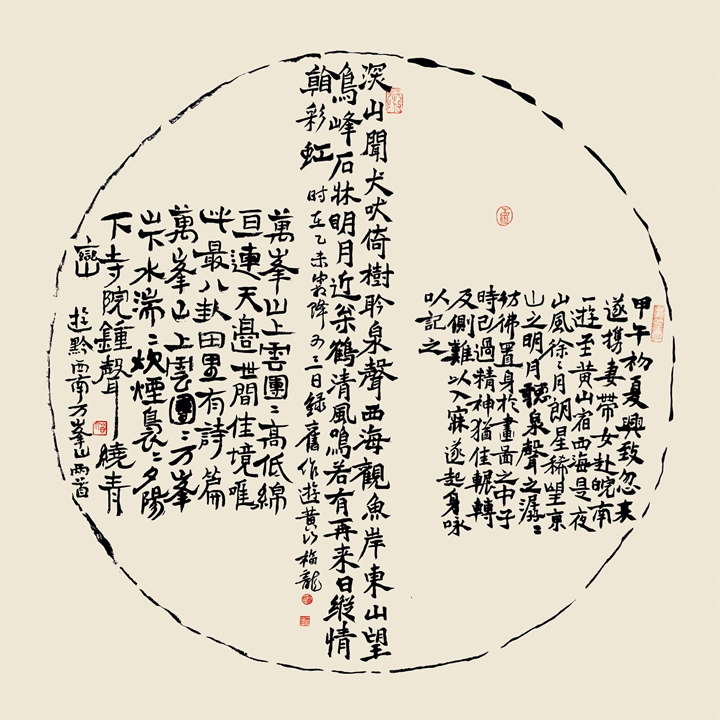 甲午初夏興致忽来
遂携妻帶女赴皖南
一遊至黄山宿西海是夜
山風徐〻月朗星稀望京
山之明月聽泉聲之潺〻
彷彿置身於畫圖之中子
時已過精神猶佳輾轉
及側難以入寐遂起身咏
以記之
深山聞犬吠倚樹聆泉聲西海觀魚岸東山望
鳥峰石牀明月近 鶴清風鳴若有再来日縱情
翰彩虹
时在乙未霜降 三日録舊作遊黄山梅龍
萬峯山上雲團〻高低綿
亘連天邉世間佳境唯
此最八卦田里有詩篇
萬峯山上雲團〻万峯
山下水湍〻炊煙裊〻夕陽
下寺院鍾聲繞青
巒
遊黔西南万峯山两首